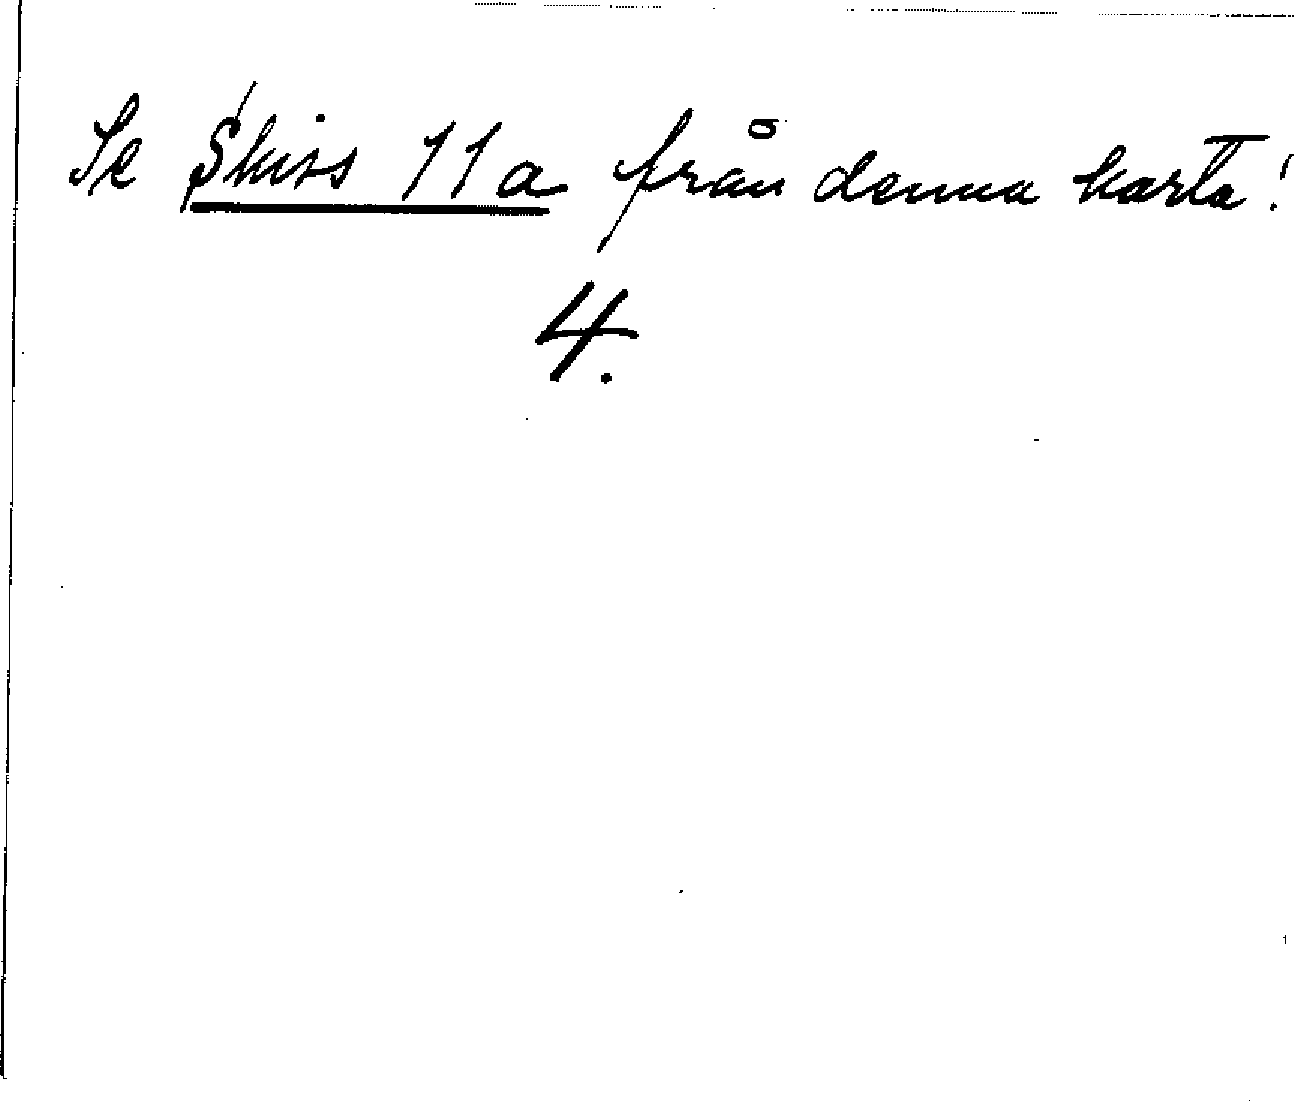 Se Skiss 11a från denna karta!
4.